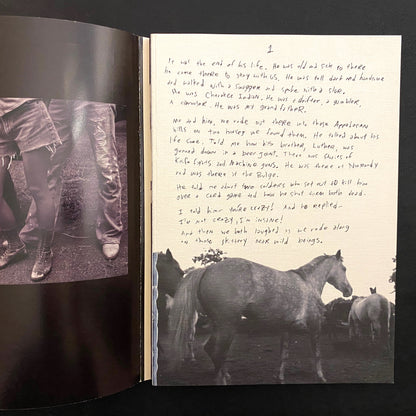 1
It was the end of his life. He was old and sick so there
he came there to stay with us. He was tall dark and handsome
and walked with a swagger and spoke with a slur.
He was Cherokee Indian. He was a drifter, a gambler,
a carouser. He was my grandfather.
Me and him, we rode out there into those Appaloosa
hills on two horses we found there. He talked about his
life some. Told me how his brother, Luther, was
gunned down in a beer joint. There was stories of
knife fights and machine guns. He was there at Normandy
and was there at the Bulge.
He told me about two soldiers who set out to kill him
over a card game and how he shot them both dead.
I told him you're crazy! And he replied-
I'm not crazy, I'm insane!
And then we both laughed as we rode along
on those skittery near wild beings.